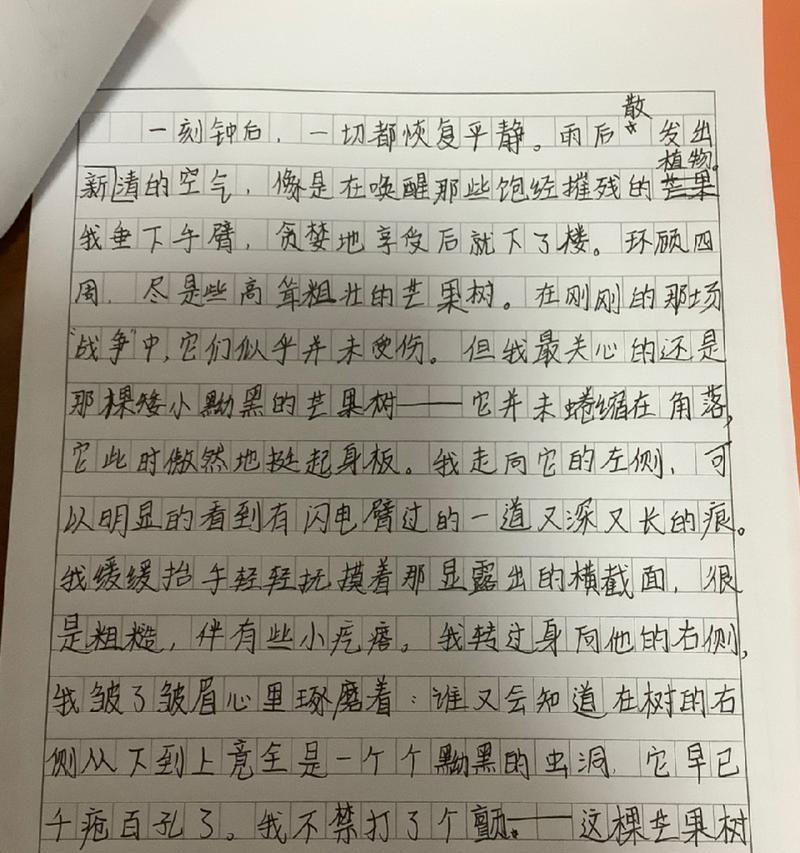 散
一刻钟后，一切都恢复平静。雨后发出
植物。
新清的空气，像是在唤醒那些饱经摧残的芒果
我垂下手臂，贪婪地享受后就下了楼。环顾四
周，尽是些高耸粗壮的芒果树。在刚刚的那场
“战争”中，它们似乎并未受伤。但我最关心的还是
那棵矮小黝黑的芒果树——它并未蜷缩在角落，
它此时傲然地挺起身板。我走向它的左侧，可
以明显的看到有闪电臂过的一道又深又长的痕。
我缓缓抬手轻轻抚摸着那显露出的横截面，很
是粗糙，伴有些小疙瘩。我转过身向他的右侧，
我皱了皱眉心里琢磨着：谁又会知道在树的右
侧从下到上竟全是一个个黝黑的虫洞，它早已
千疮百孔了。我不禁打了个颤——这棵芒果树